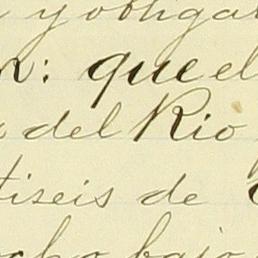 y obligat
r: que el
del Rio
tiseis de
cho bajo